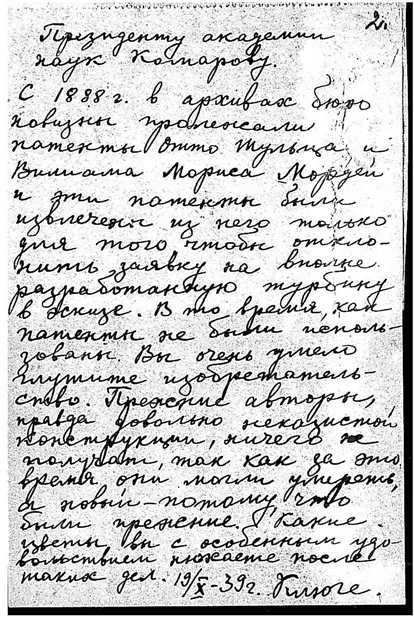 2.
Президенту академии
наук Комарову.
С 1888 г. в архивах бюро
новизны пролежали
патенты Отто Шульца и
Вилиама Мориса Мордей
и эти патенты были
извлечены из него только
для того чтобы откло-
нить заявку на вполне
разработанную турбину
в эскизе. В то время, как
патенты не были исполь-
зованы. Вы очень умело
глушите изобретатель-
ство. Прежние авторы,
правда довольно неказистой
конструкции, ничего не
получат, так как за это
время они могли умереть,
а новый - потому, что
были прежние. Какие
цветы вы с особенным удо-
вольствием нюхаете после
таких дел. 19/X-39г. Клюге.